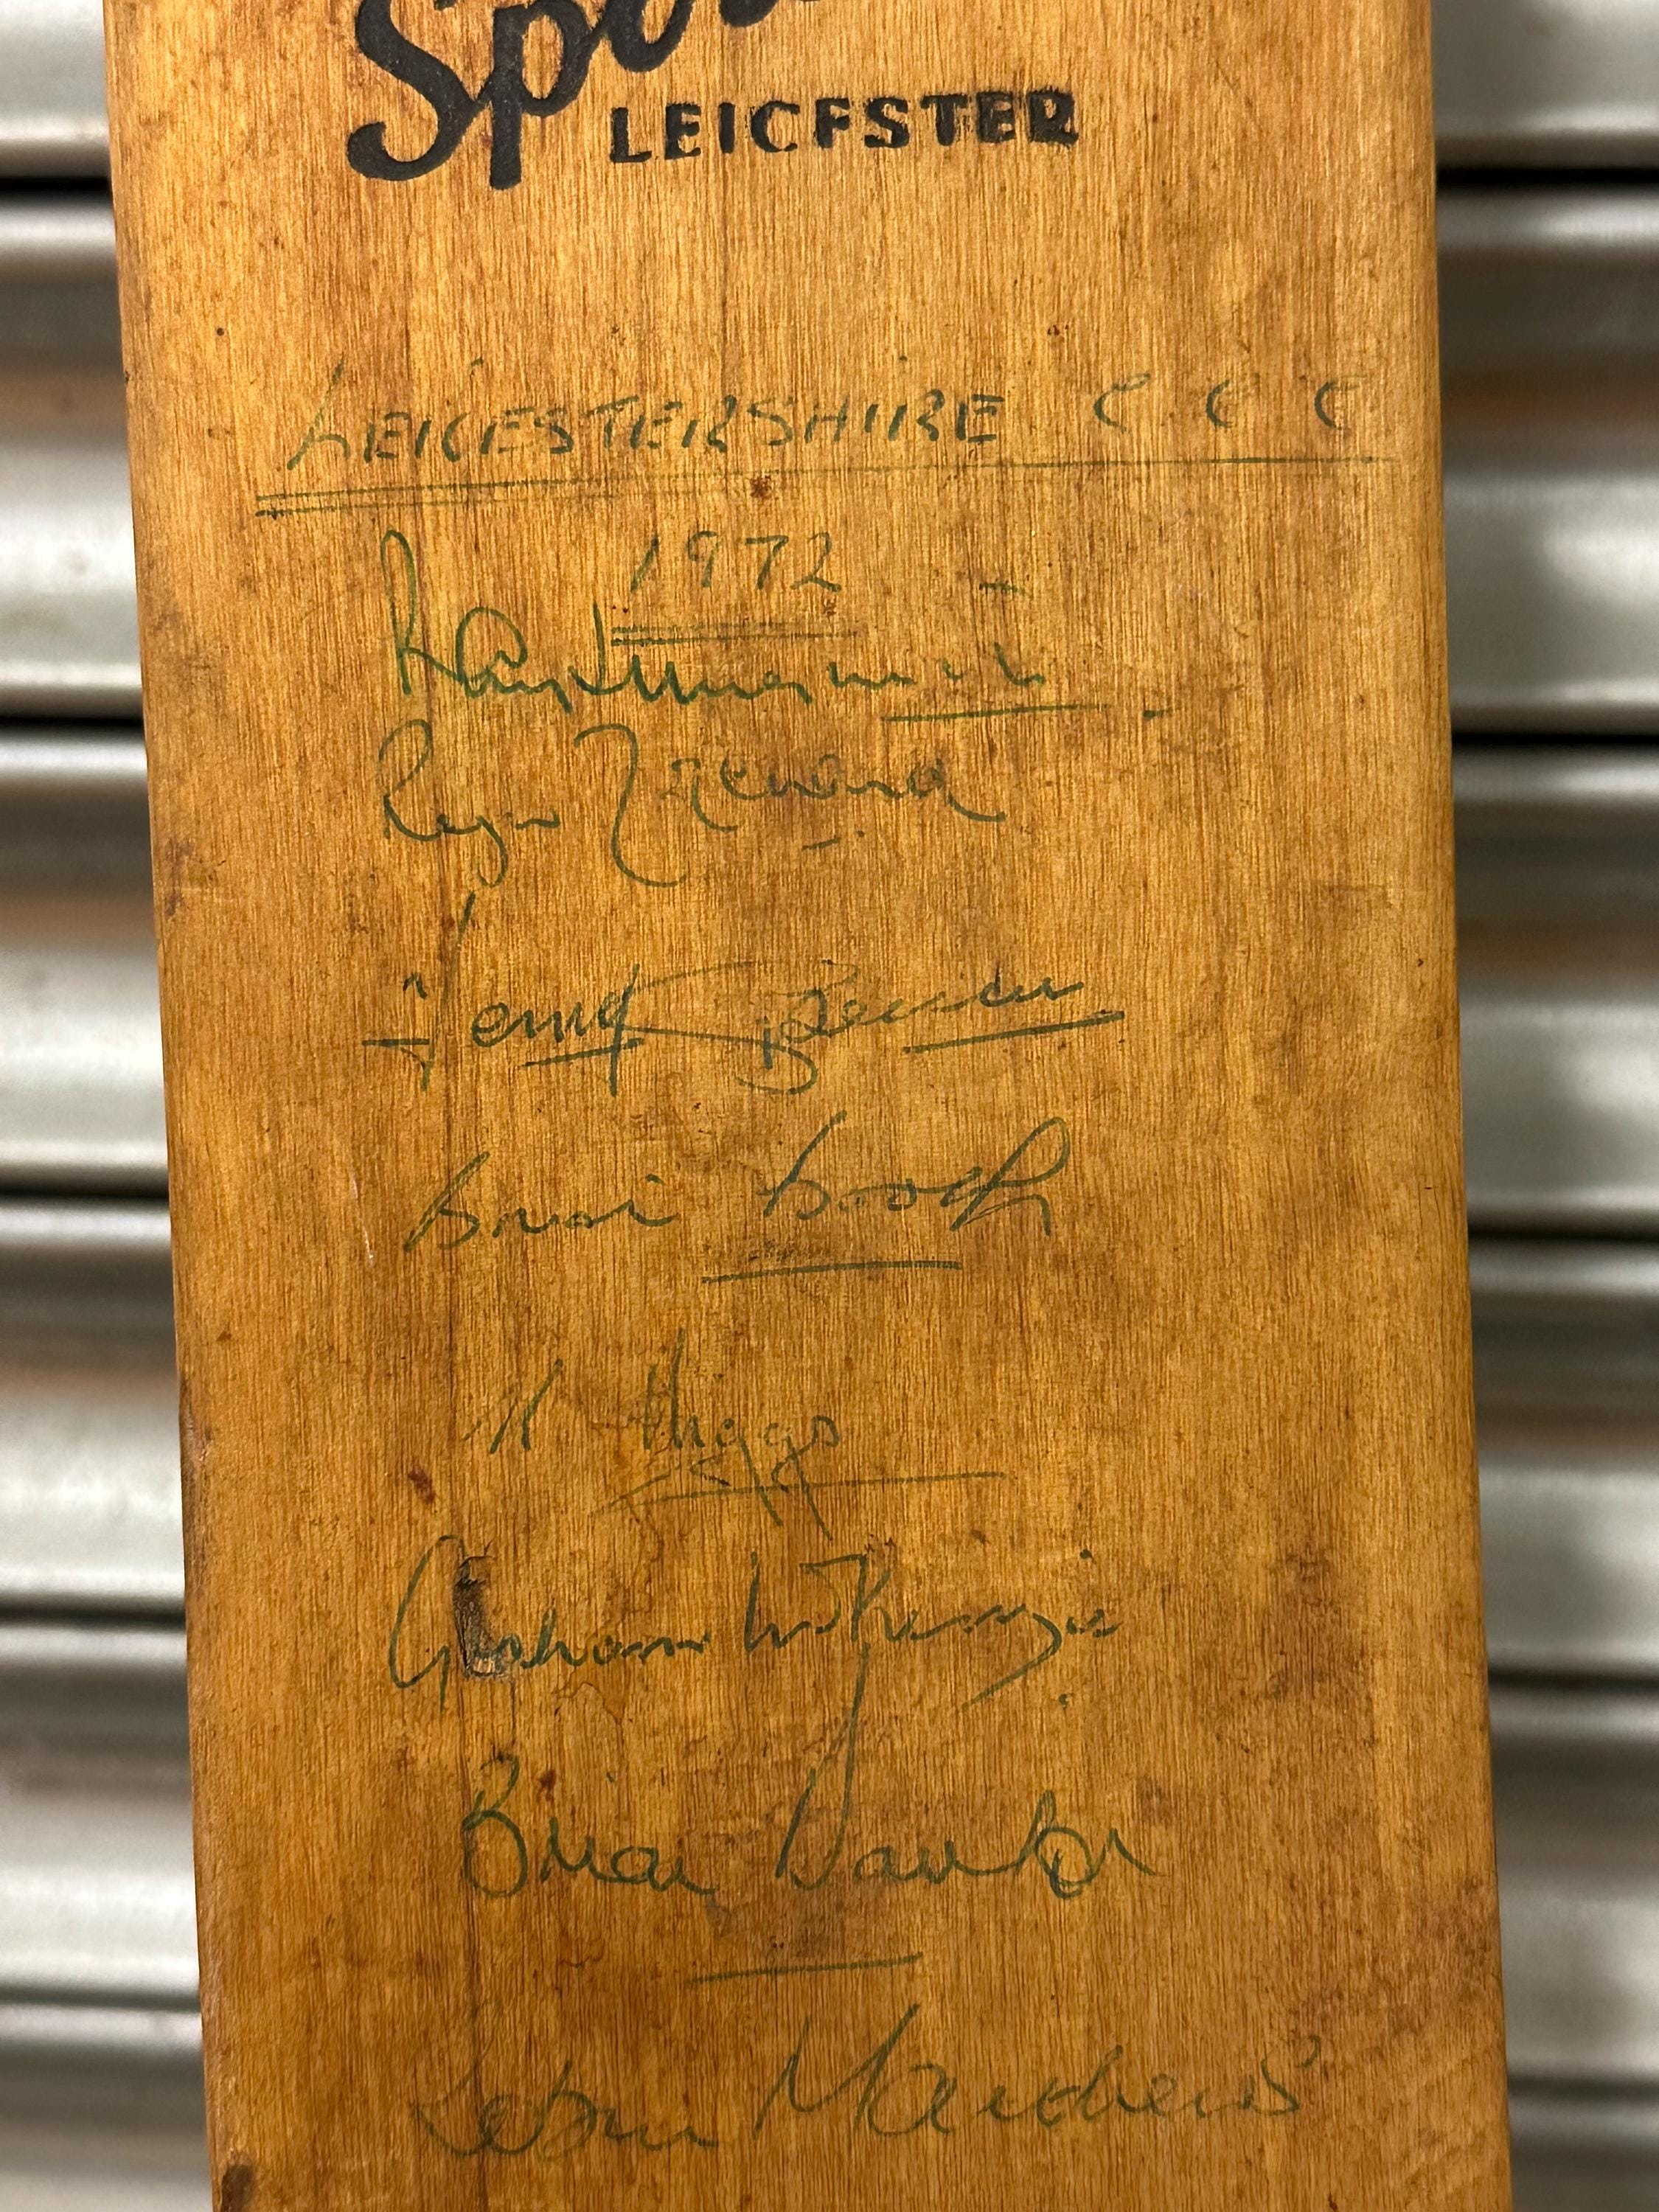 Spo
LEICESTER
LEICESTERSHIRE C C C
1972
Ray Illingworth
Roger Tolchard
Brian Booth
K Higgs
Graham McKenzie
Brian Davison
Robin Matthews